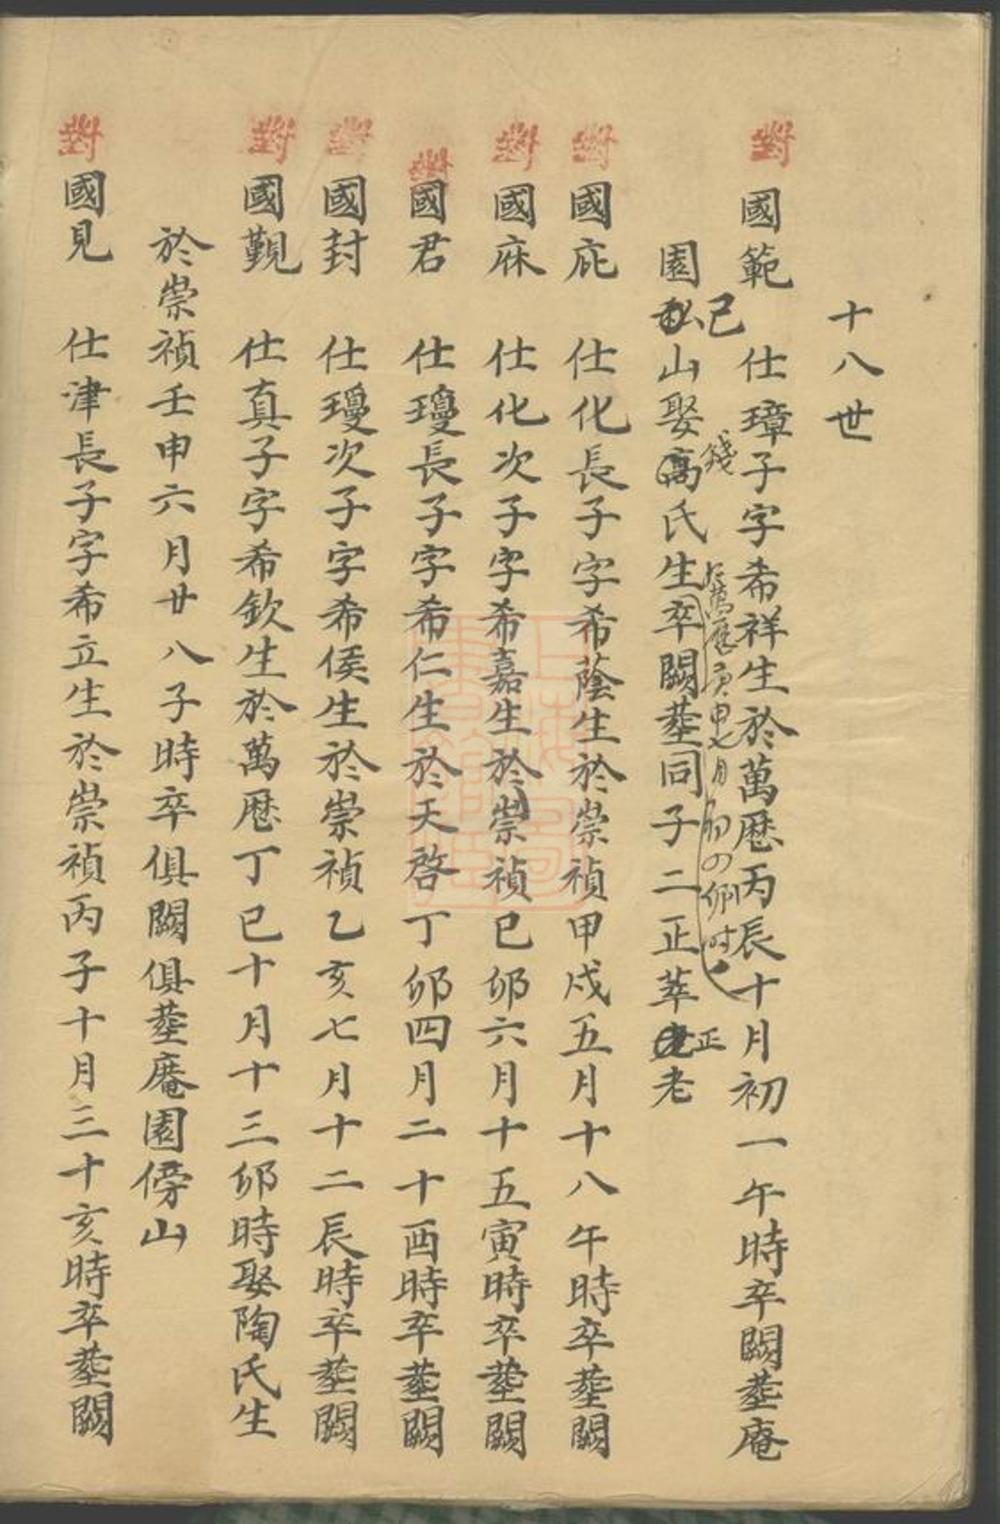 十八世
對 國範 仕璋子字希祥生於萬厯丙辰十月初一午時卒闕塟庵
園私山娶高氏生卒闕塟同子二正萃老
己 錢 於萬厯庚申七月初四卯时 正
對 國庇 仕化長子字希蔭生於崇禎甲戍五月十八午時卒塟闕
對 國庥 仕化次子字希嘉生於崇禎己卯六月十五寅時卒塟闕
對 國君 仕瓊長子字希仁生於天啓丁卯四月二十酉時卒塟闕
對 國封 仕瓊次子字希侯生於崇禎乙亥七月十二辰時卒塟闕
對 國覲 仕真子字希欽生於萬厯丁巳十月十三卯時娶陶氏生
於崇禎壬申六月廿八子時卒俱闕俱塟庵園傍山
對 國見 仕津長子字希立生於崇禎丙子十月三十亥時卒塟闕